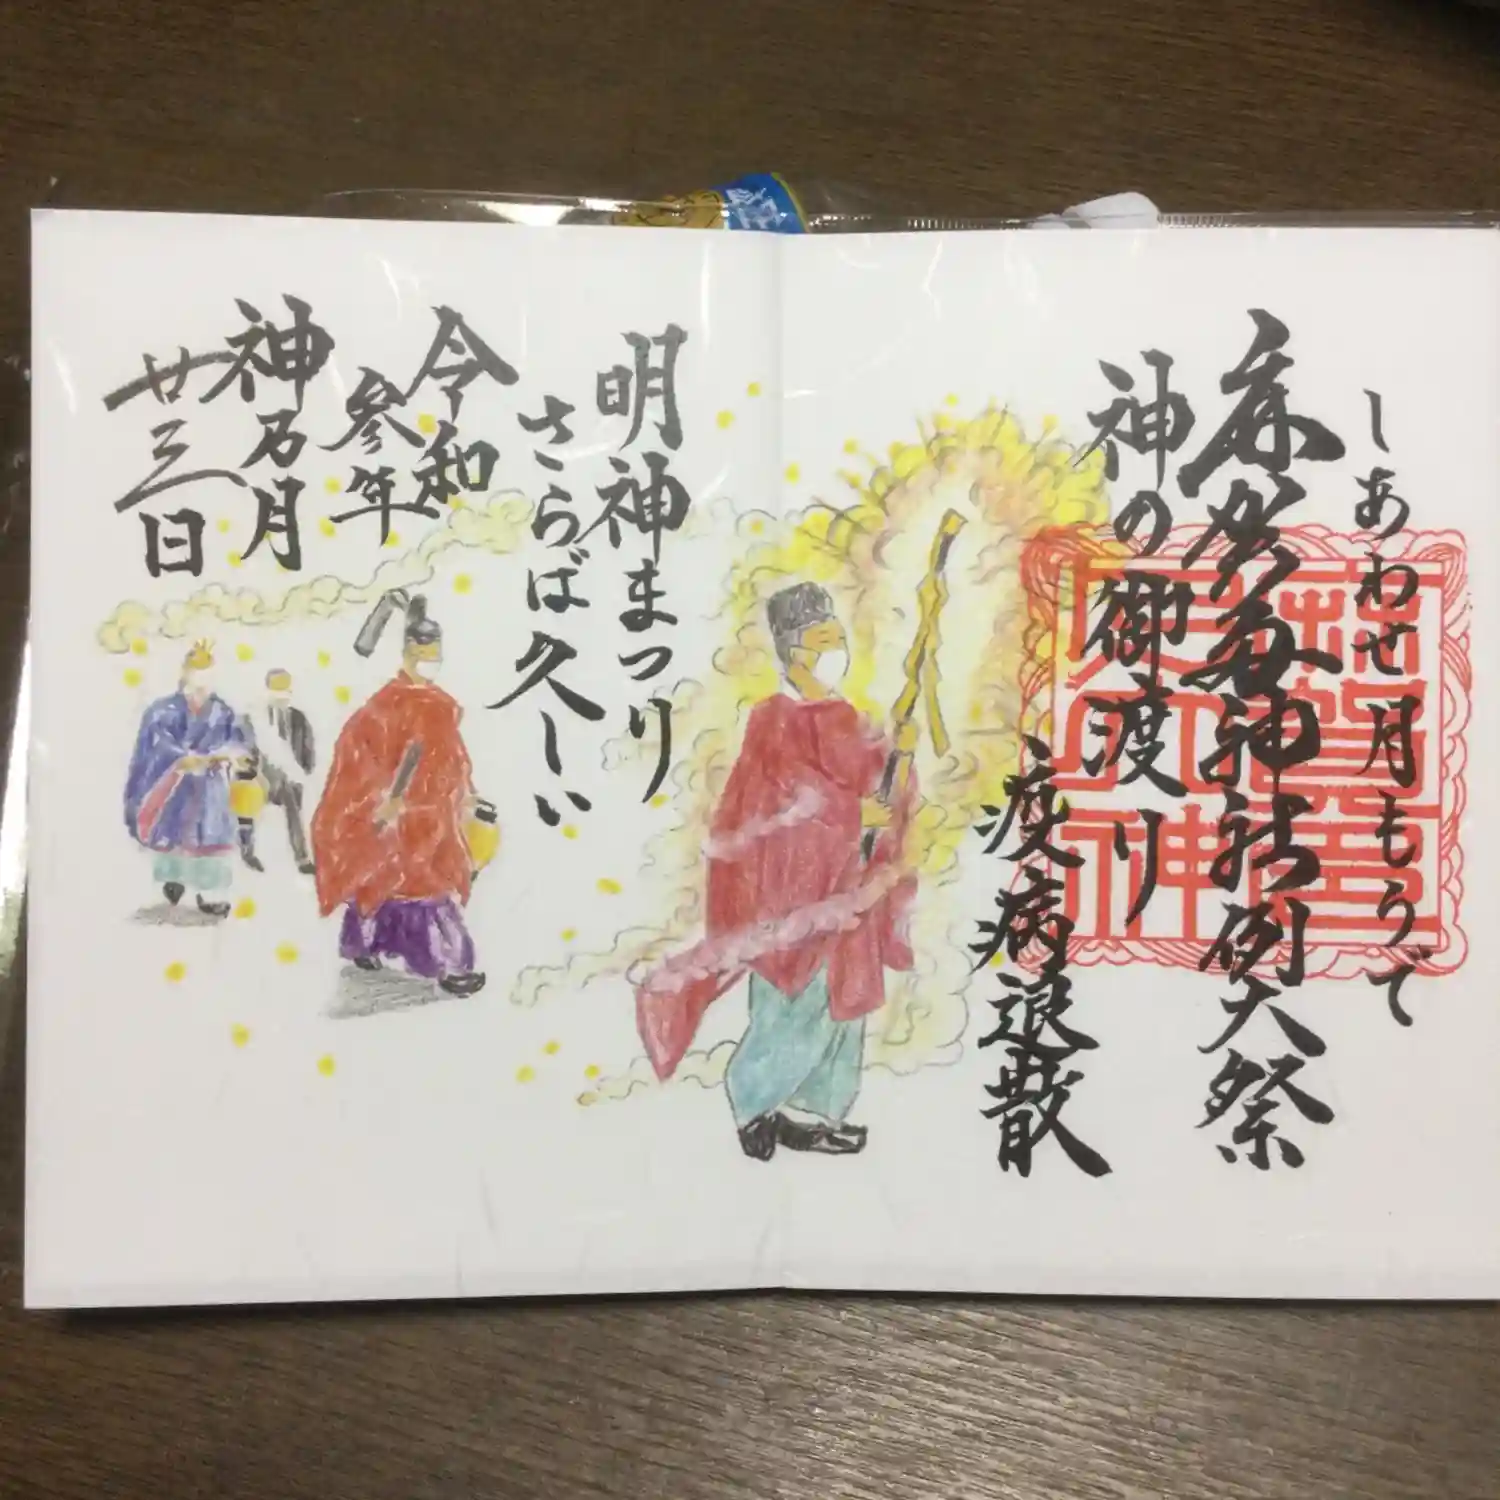 しあわせ月もうで
麻賀多神社例大祭
神の御渡り
疫病退散
明神まつり
さらば久しい
令和
参年
神无月
廿三日